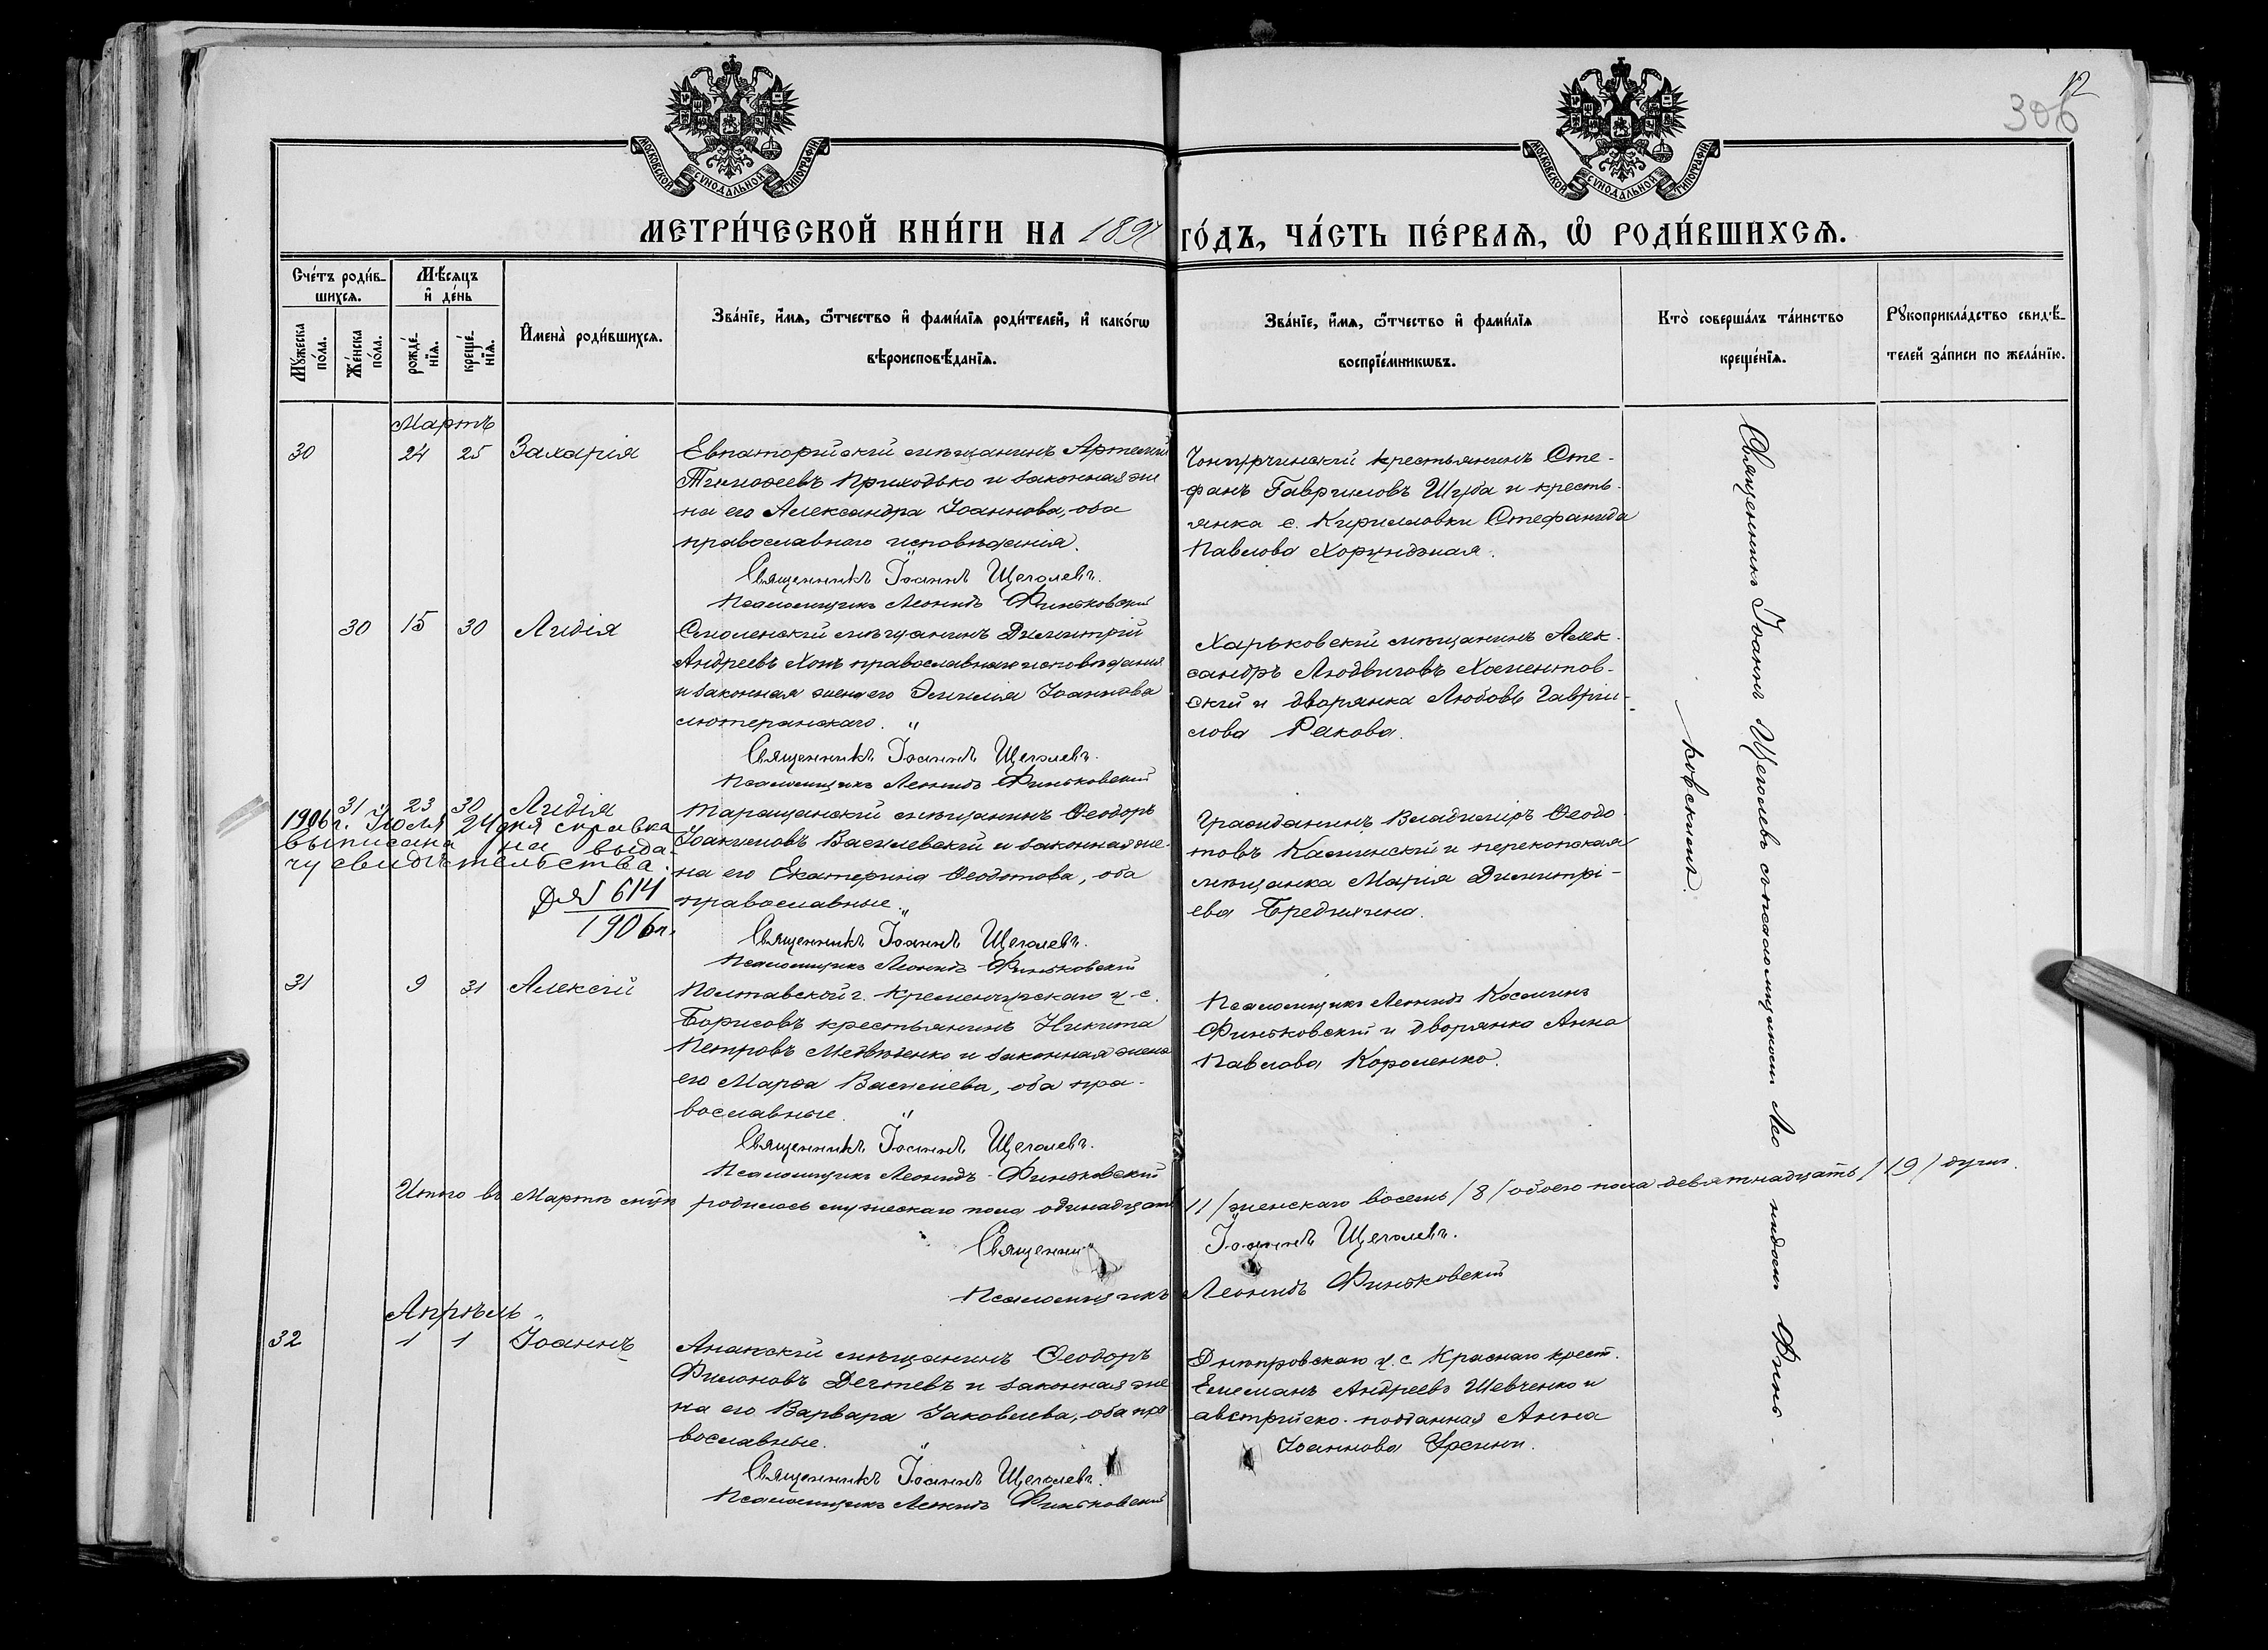 12
306
МОСКОВСКОЙ СѴНОДАЛЬНОЙ ТИПОГРАФІИ
МОСКОВСКОЙ СѴНОДАЛЬНОЙ ТИПОГРАФІИ
МЕТРИ́ЧЕСКОЙ КНИ́ГИ НА 1897 ГО́ДЪ, ЧА́СТЬ ПЕ́РВАѦ, Ѡ҆ РОДИ́ВШИХСѦ.
Сче́тъ роди́в-
шихсѧ.
Мѣ́сѧцъ
и҆ де́нь
Мꙋ́жеска по́ла.
Же́нска по́ла.
рожде́-
нїѧ.
креще́-
нїѧ.
И҆мена̀ роди́вшихсѧ.
Зва́нїе, и҆́мѧ, ѻ҆́тчество и҆ фами́лїѧ роди́телей, и҆ како́гѡ
вѣроисповѣ́данїѧ.
Зва́нїе, и҆́мѧ, ѻ҆́тчество и҆ фами́лїѧ
воспрїе́мникѡвъ.
Кто̀ соверша́лъ та́инство
креще́нїѧ.
Рꙋкоприкла́дство свидѣ́-
телей за́писи по жела́нїю.
Мартъ
30 24 25 Захарія
Евпаторійскій мѣщанинъ Артемій
Тимоѳеевъ Приходько и законная же
на его Александра Іоаннова, оба
православнаго исповѣданія.
Священникъ Іоаннъ Щеголевъ.
Псаломщикъ Леонидъ Финьковскій
крестьянинъ Сте-
фанъ Гавриловъ Шуба и кресть-
янка с. Кирилловки Стефанида
Павлова Хорунджая.
30 15 30 Лидія
Смоленскій мѣщанинъ Димитрій
Андреевъ Хонъ православнаго исповѣданія
и законная жена его Эмилія Іоаннова
лютеранскаго.
Священникъ Іоаннъ Щеголевъ.
Псаломщикъ Леонидъ Финьковскій
Харьковскій мѣщанинъ Алек-
сандръ Людвиговъ Хоментов-
скій и дворянка Любовь Гаврии-
лова Ракова.
31 23 30 Лидія
1906 г. Іюля 24 дня справка
выписана на выда-
чу свидѣтельства.
Д № 614
1906 г.
Таращанскій мѣщанинъ Ѳеодоръ
Іоакимовъ Василевскій и законная же-
на его Екатерина Ѳеодотова, оба
православные.
Священникъ Іоаннъ Щеголевъ.
Псаломщикъ Леонидъ Финьковскій
Гражданинъ Владиміръ Ѳеодо
товъ Каминскій и перекопская
мѣщанка Марія Димитрі-
ева Бреднихина.
31 9 31 Алексій
Полтавской г. Кременчугскаго у. с.
Борисовъ крестьянинъ Никита
Петровъ Медвѣденко и законная жена
его Марѳа Василіева, оба пра-
вославные.
Священникъ Іоаннъ Щеголевъ.
Псаломщикъ Леонидъ Финьковскій
Псаломщикъ Леонидъ Косминъ
Финьковскій и дворянка Анна
Павлова Короленко.
Итого въ Мартѣ мѣсяцѣ родилось мужескаго пола одинадцать /11/ женскаго восемь /8/ обоего пола девятнадцать /19/ душъ.
Священникъ Іоаннъ Щеголевъ.
Псаломщикъ Леонидъ Финьковскій
Апрѣль
32 1 1 Іоаннъ
Ананскій мѣщанинъ Ѳеодоръ
Филоновъ Дегтевъ и законная же
на его Варвара Іаковлева, оба пра
вославные.
Священникъ Іоаннъ Щеголевъ.
Псаломщикъ Леонидъ Финьковскій
Днѣпровскаго у. с. Краснаго крест.
Емельянъ Андреевъ Шевченко и
австрійско-подданная Анна
Іоаннова
Священникъ Іоаннъ Щеголевъ съ псаломщикомъ Леонидомъ Финь-
ковскимъ.